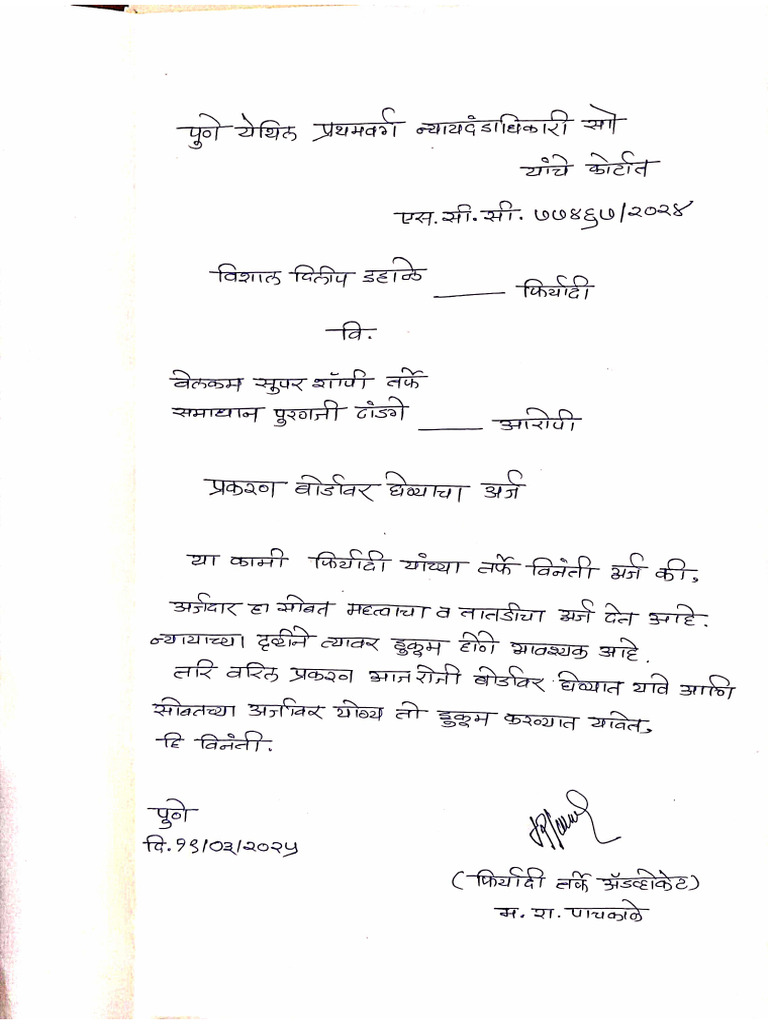 पुणे येथिल प्रथमवर्ग न्यायदंडाधिकारी सो
यांचे कोर्टात
एस.सी.सी. ७७४६७/२०२४
विशाल दिलीप डहाळे ____ फिर्यादी
वि.
वेलकम सुपर शॉपी तर्फे
समाधान पुरणजी दांडगे ____ आरोपी
प्रकरण बोर्डावर घेण्याचा अर्ज
या कामी फिर्यादी यांच्या तर्फे विनंती अर्ज की,
अर्जदार हा सोबत महत्वाचा व तातडीचा अर्ज देत आहे.
न्यायाच्या दृष्टीने त्यावर हुकूम होणे आवश्यक आहे.
तरि वरिल प्रकरण आज रोजी बोर्डावर घेण्यात यावे आणि
सोबतच्या अर्जावर योग्य तो हुकूम करण्यात यावेत,
हि विनंती.
पुणे
दि.१९/०३/२०२५
(फिर्यादी तर्फे ॲडव्होकेट)
म. रा. पाचकाळे